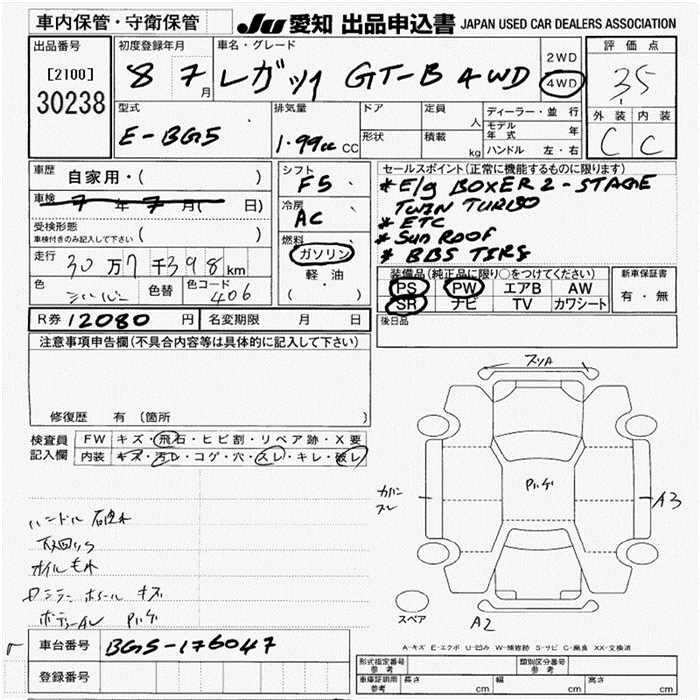 車内保管・守衛保管
JU 愛知 出品申込書 JAPAN USED CAR DEALERS ASSOCIATION
出品番号
[2100]
30238
初度登録年月
8 7月
車名・グレード
レガツィ GT-B 4WD
2WD
4WD
評価点
3.5
外装 内装
C C
型式
E-BG5
排気量
1.99cc CC
ドア
形状
定員 人
積載 kg
ディーラー・並行
モデル年式 年
ハンドル 左・右
車歴
自家用・( )
車検 7年7月( 日)
受検形態
車検付きのみ記入して下さい ( )
走行 30万7千398km
色 シルバー 色替 色コード 406
シフト
F5
冷房
AC
燃料
ガソリン
軽油
( ・ )
セールスポイント(正常に機能するものに限ります)
* E/g BOXER 2-STAGE
TWIN TURBO
* ETC
* SUN ROOF
* BBS TIRS
装備品(純正品に限り○をつけてください)
PS PW エアB AW
SR ナビ TV カワシート
新車保証書
有・無
後日品
R券 12080 円 名変期限 月 日
注意事項申告欄(不具合内容等は具体的に記入して下さい)
修復歴 有 (箇所 )
検査員
記入欄
FW キズ・飛石・ヒビ割・リペア跡・X要
内装 キズ・汚レ・コゲ・穴・スレ・キレ・破レ
ハンドル
オイルもれ
キズ
車台番号 BG5-176047
登録番号
カバン
スレ
A3
A2
スペア
A-キズ E-エクボ U-凹み W-補修跡 S-サビ C-腐食 XX-交換済
形式指定番号
参考
類別区分番号
参考
車庫証明用
参考
長さ cm 幅 cm 高さ cm